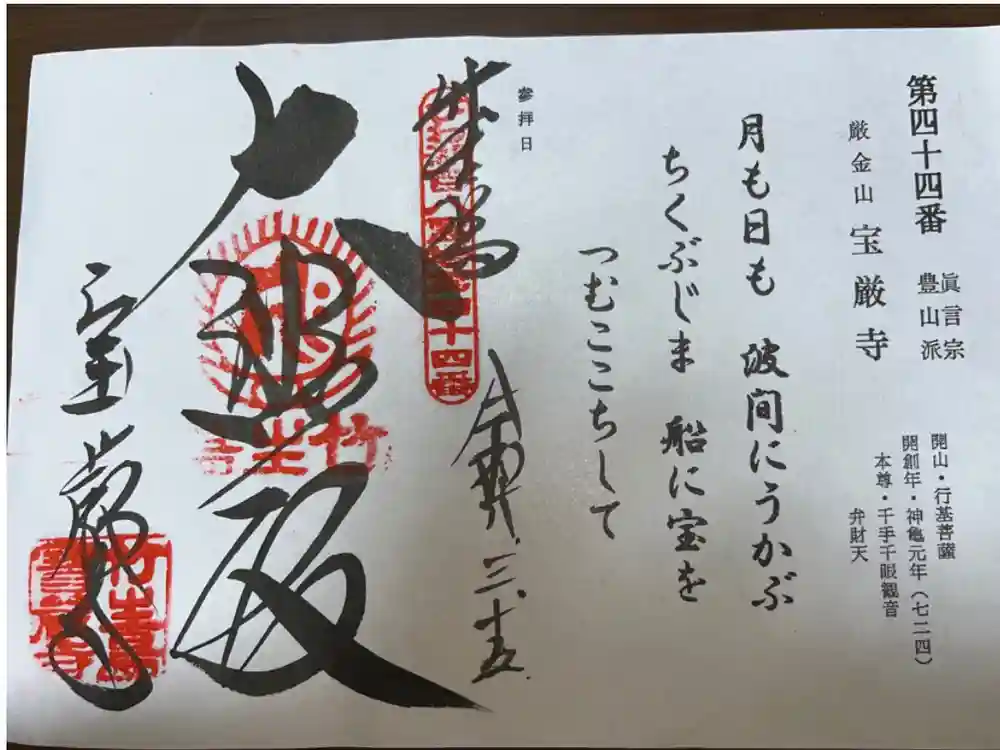 第四十四番
眞言宗
豊山派
厳金山 宝厳寺
開山・行基菩薩
開創年・神亀元年(七二四)
本尊・千手千眼観音
弁財天
月も日も 波間にうかぶ
ちくぶじま 船に宝を
つむここちして
参拝日
竹生島
三
大
殿
宝厳寺
十四番
竹生